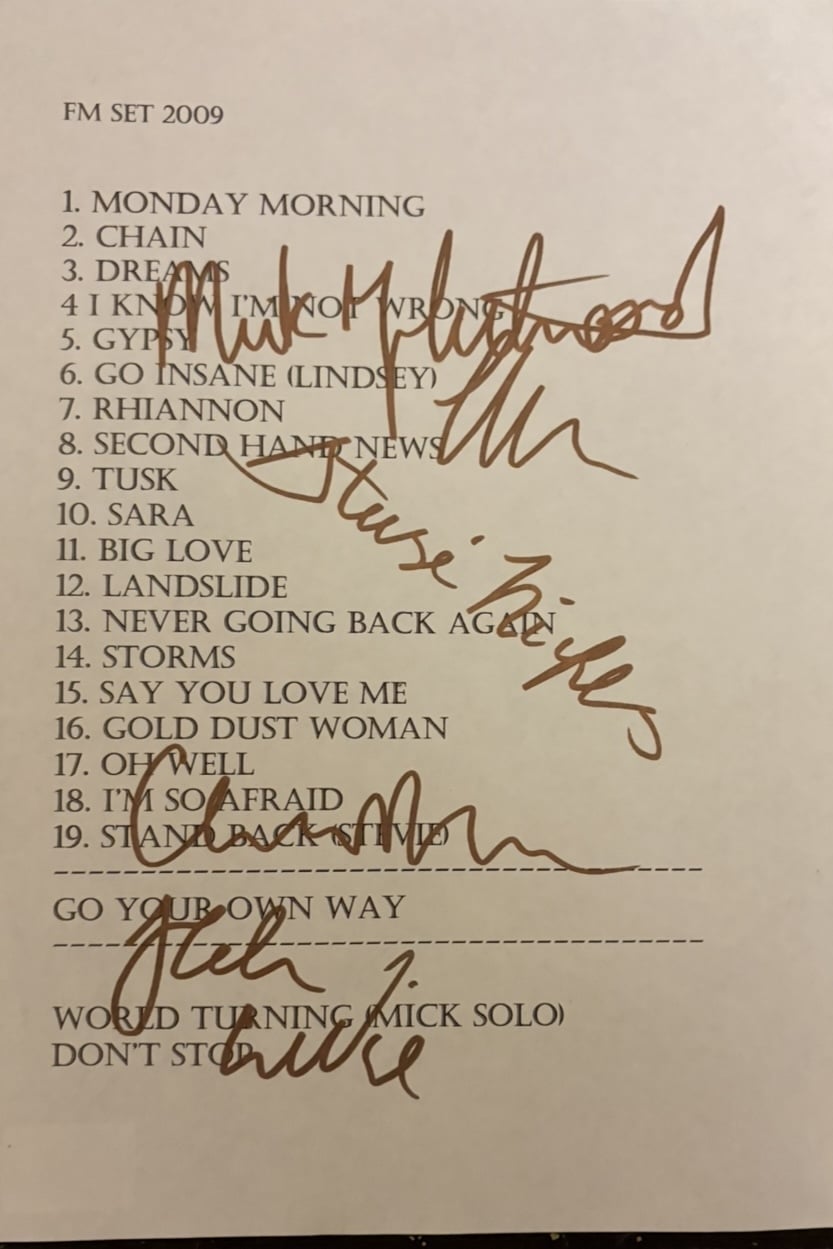 FM SET 2009
1. MONDAY MORNING
2. CHAIN
3. DREAMS
4 I KNOW I'M NOT WRONG
5. GYPSY
6. GO INSANE (LINDSEY)
7. RHIANNON
8. SECOND HAND NEWS
9. TUSK
10. SARA
11. BIG LOVE
12. LANDSLIDE
13. NEVER GOING BACK AGAIN
14. STORMS
15. SAY YOU LOVE ME
16. GOLD DUST WOMAN
17. OH WELL
18. I'M SO AFRAID
19. STAND BACK (STEVIE)
GO YOUR OWN WAY
WORLD TURNING (MICK SOLO)
DON'T STOP
Mick Fleetwood
Stevie Nicks